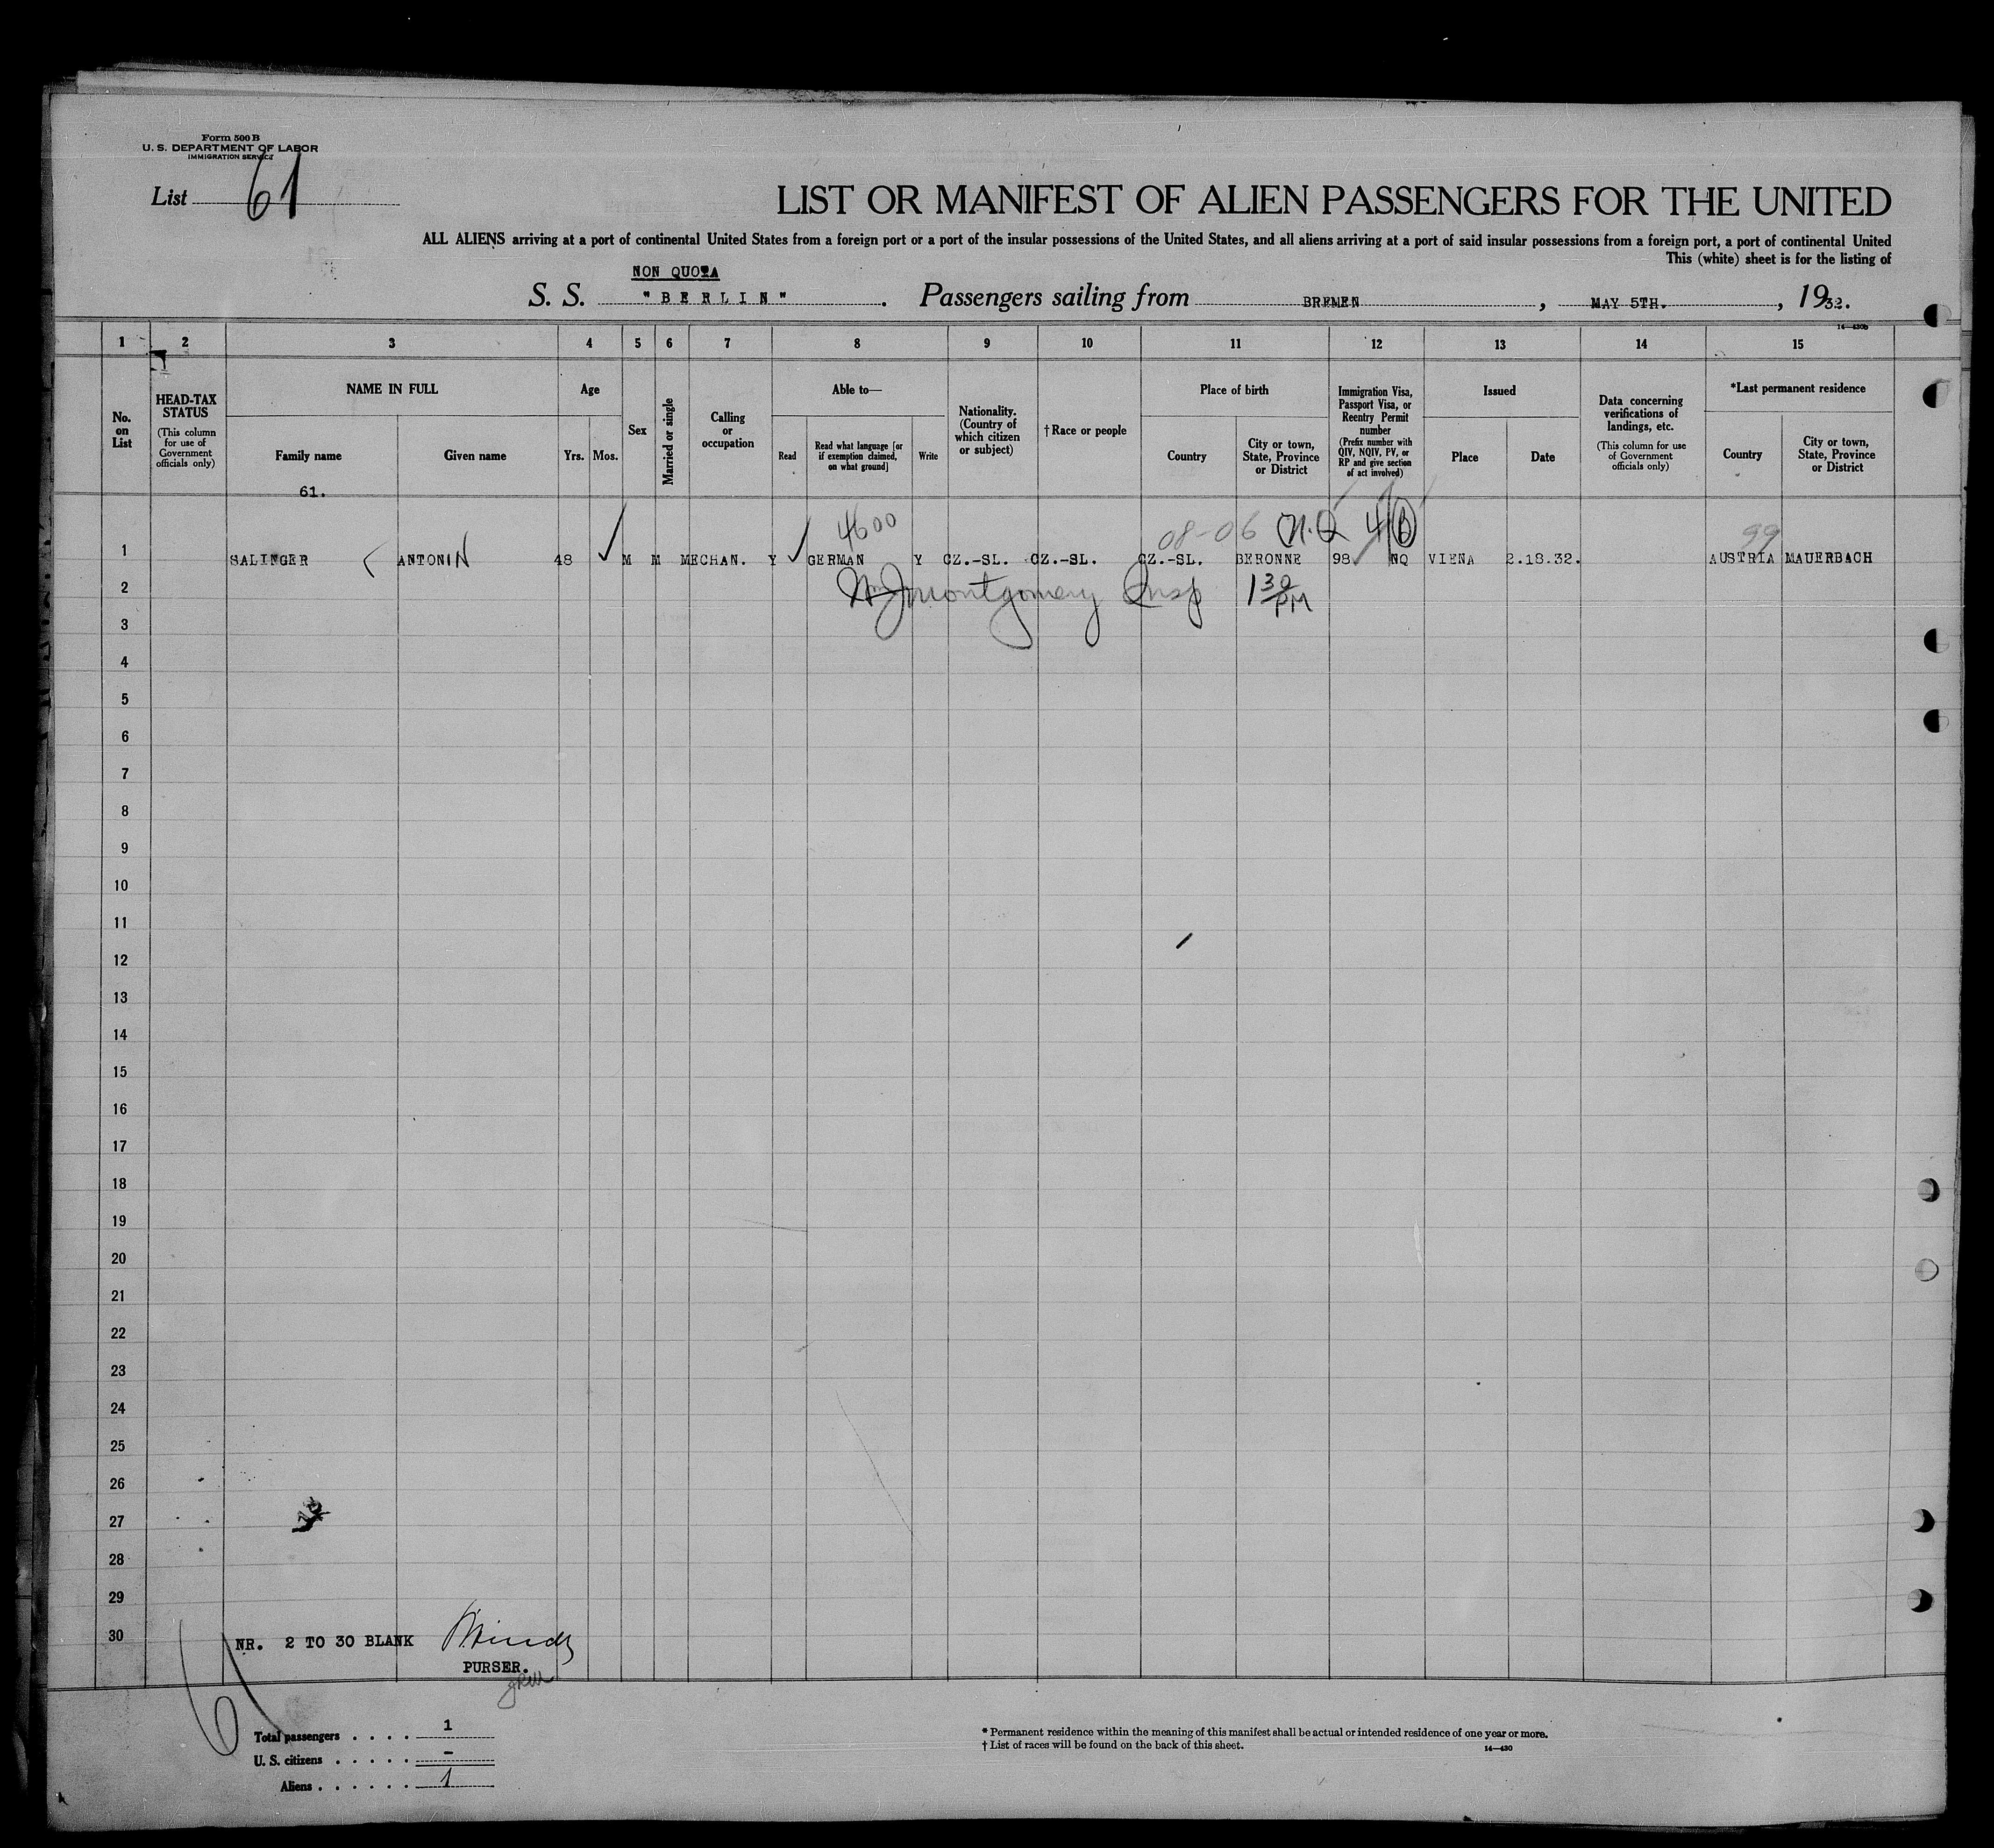 Form 500 B
U. S. DEPARTMENT OF LABOR
IMMIGRATION SERVICE
List 61
LIST OR MANIFEST OF ALIEN PASSENGERS FOR THE UNITED
ALL ALIENS arriving at a port of continental United States from a foreign port or a port of the insular possessions of the United States, and all aliens arriving at a port of said insular possessions from a foreign port, a port of continental United
This (white) sheet is for the listing of
NON QUOTA
S. S. "BERLIN". Passengers sailing from BREMEN, MAY 5TH., 1932.
14—430b
1 2 3 4 5 6 7 8 9 10 11 12 13 14 15
No. on List
HEAD-TAX STATUS
(This column for use of Government officials only)
NAME IN FULL
Family name
Given name
Age
Yrs. Mos.
Sex
Married or single
Calling or occupation
Able to—
Read
Read what language [or if exemption claimed, on what ground]
Write
Nationality. (Country of which citizen or subject)
† Race or people
Place of birth
Country
City or town, State, Province or District
Immigration Visa, Passport Visa, or Reentry Permit number
(Prefix number with QIV, NQIV, PV, or RP and give section of act involved)
Issued
Place
Date
Data concerning verifications of landings, etc.
(This column for use of Government officials only)
*Last permanent residence
Country
City or town, State, Province or District
61.
4600 08-06 N.Q 4 B 99
1 SALINGER ANTONIN 48 M M MECHAN. Y GERMAN Y CZ.-SL. CZ.-SL. CZ.-SL. BERONNE 98 NQ VIENA 2.18.32. AUSTRIA MAUERBACH
2 Montgomery Insp 1 30 PM
3
4
5
6
7
8
9
10
11
12
13
14
15
16
17
18
19
20
21
22
23
24
25
26
27
28
29
30 NR. 2 TO 30 BLANK
PURSER.
61
Total passengers . . . . 1
U. S. citizens . . . . . -
Aliens . . . . . . 1
* Permanent residence within the meaning of this manifest shall be actual or intended residence of one year or more.
† List of races will be found on the back of this sheet.
14—430